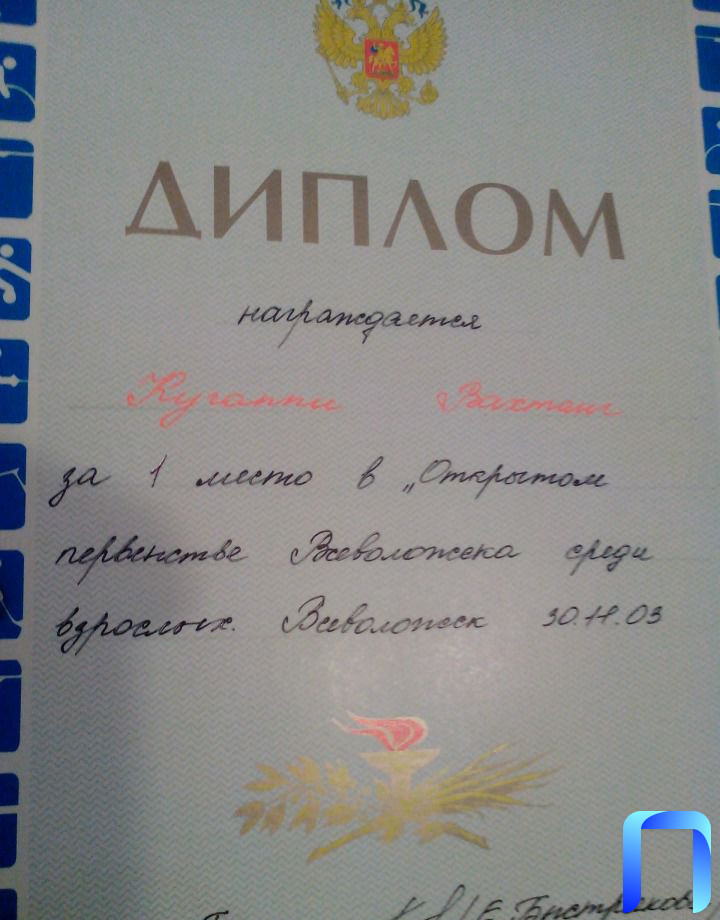 ДИПЛОМ
награждается
Кугаппи Вахтанг
за 1 место в „Открытом
первенстве Всеволожска среди
взрослых. Всеволожск 30.11.03